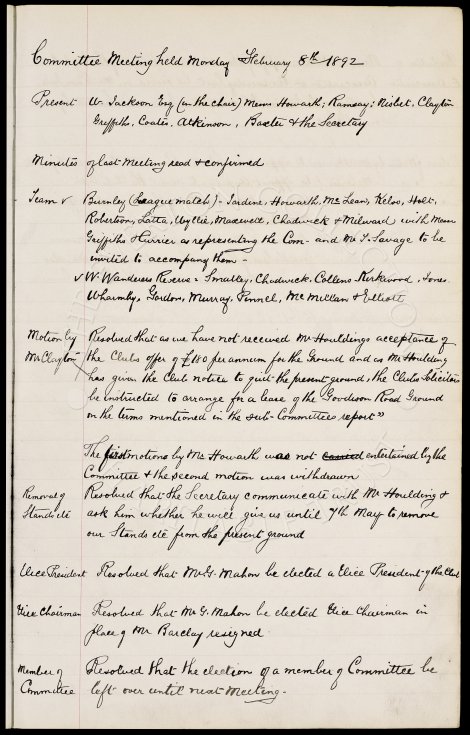 Committee Meeting held Monday February 8th 1892
Present W. Jackson Esq (in the chair) Messrs Howarth, Ramsay, Nisbet, Clayton
Griffiths, Coates, Atkinson, Baxter & the Secretary
Minutes of last Meeting read & confirmed
Team v Burnley (League match) - Jardine, Howarth, McLean, Kelso, Holt,
Robertson, Latta, Wyllie, Maxwell, Chadwick & Milward with Messrs
Griffiths & Currier as representing the Com - and Mr T. Savage to be
invited to accompany them -
v W. Wanderers Reserve - Smalley, Chadwick, Collens, Kirkwood, Jones
Wharmby, Gordon, Murray, Pinnel, McMillan & Elliott
Motion by Mr Clayton Resolved that as we have not received Mr Houldings acceptance of
the Clubs offer of £180 per annum for the Ground and as Mr Houlding
has given the Club notice to quit the present ground, the Clubs Solicitors
be instructed to arrange for a lease of the Goodison Road Ground
on the terms mentioned in the sub-Committees report"
The first motions by Mr Howarth was not carried entertained by the
Committee & the second motion was withdrawn
Removal of Stands etc Resolved that the Secretary communicate with Mr Houlding &
ask him whether he will give us until 7th May to remove
our Stands etc from the present ground
Vice President Resolved that Mr G. Mahon be elected a Vice President of the Club
Vice Chairman Resolved that Mr G. Mahon be elected Vice Chairman in
place of Mr Barclay resigned.
Member of Committee Resolved that the election of a member of Committee be
left over until next Meeting.